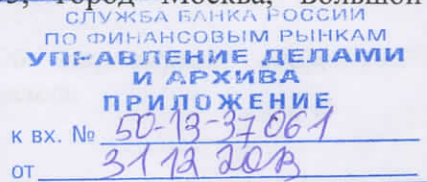 город Москва, Большой
СЛУЖБА БАНКА РОССИИ
ПО ФИНАНСОВЫМ РЫНКАМ
УПРАВЛЕНИЕ ДЕЛАМИ
И АРХИВА
ПРИЛОЖЕНИЕ
К ВХ. № 50-13-37061
ОТ 31 12 2013